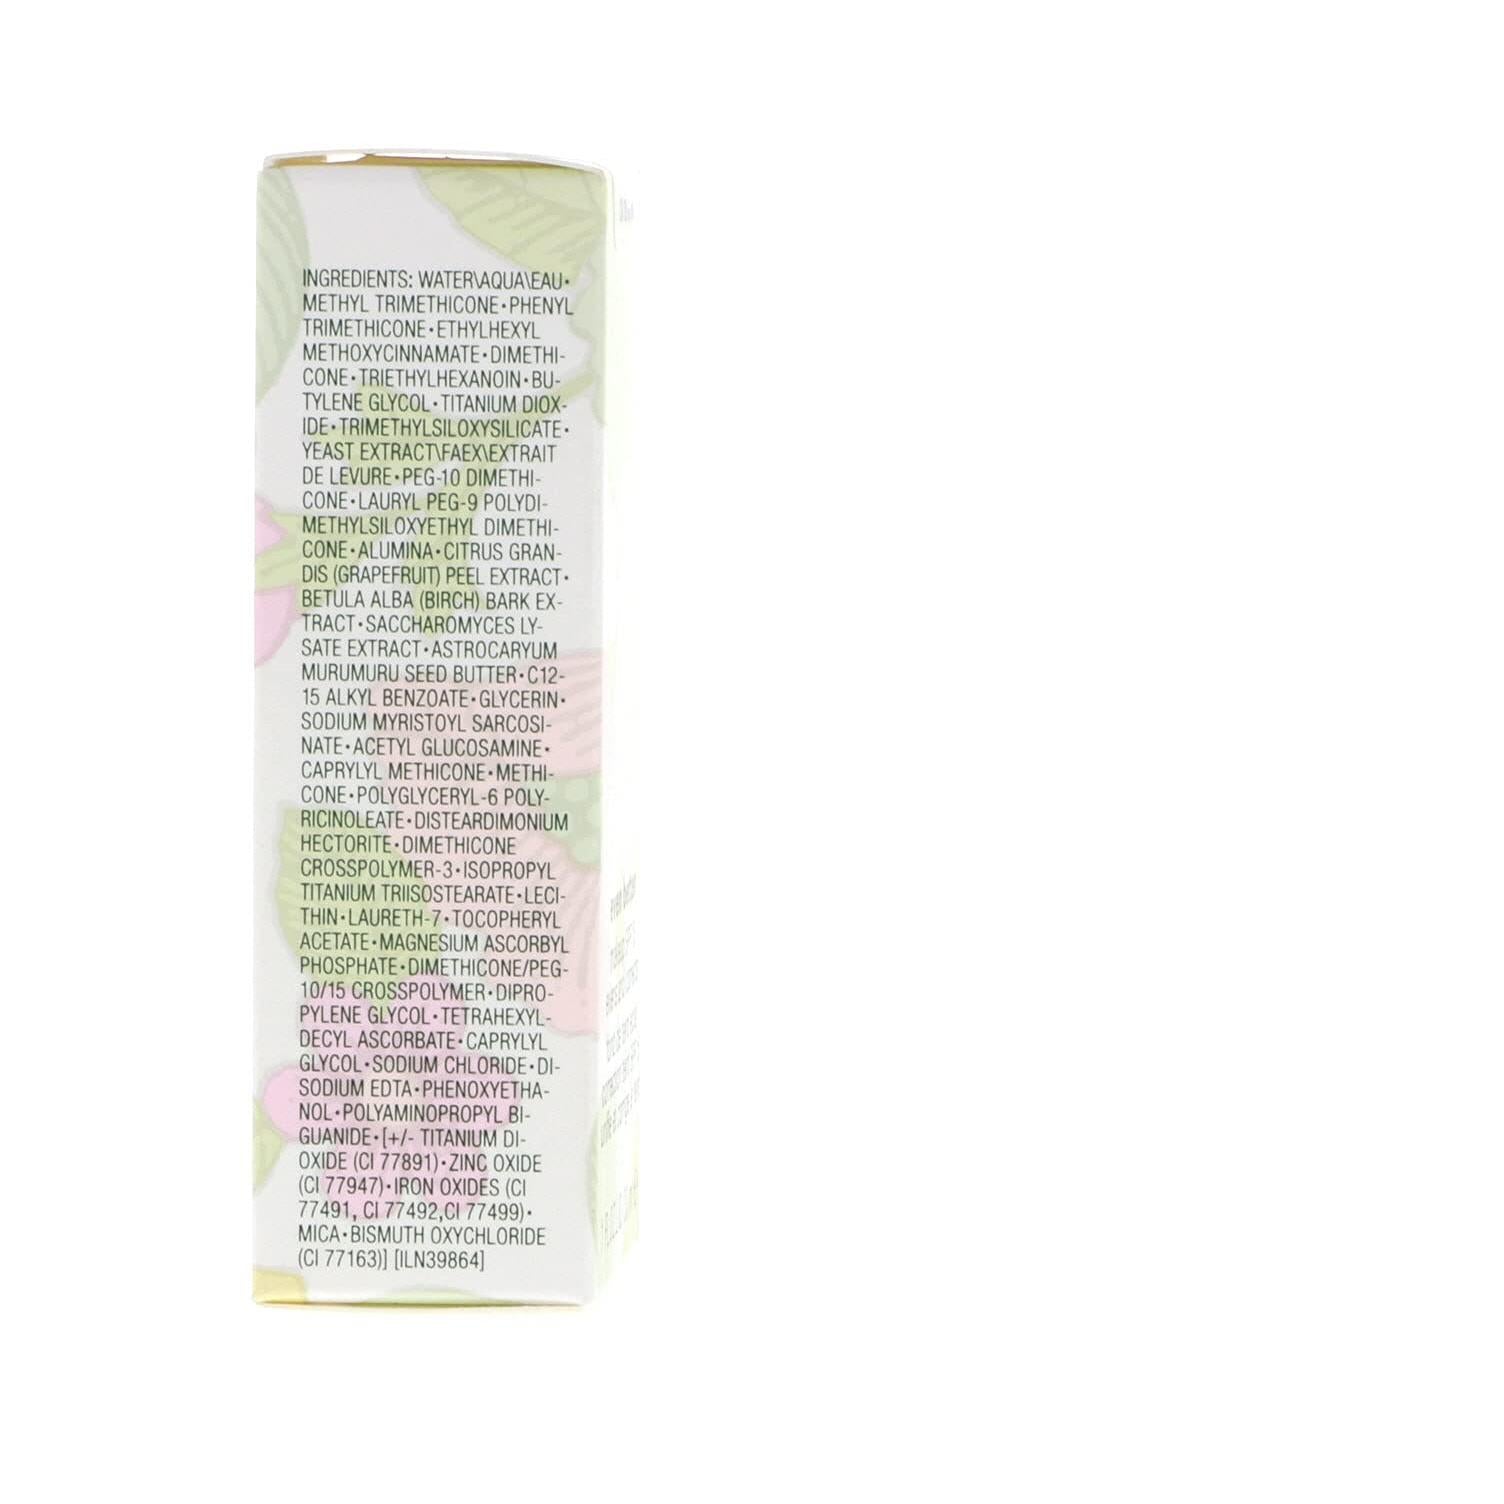 INGREDIENTS: WATER\AQUA\EAU•
METHYL TRIMETHICONE•PHENYL
TRIMETHICONE•ETHYLHEXYL
METHOXYCINNAMATE•DIMETHI-
CONE•TRIETHYLHEXANOIN•BU-
TYLENE GLYCOL•TITANIUM DIOX-
IDE•TRIMETHYLSILOXYSILICATE•
YEAST EXTRACT\FAEX\EXTRAIT
DE LEVURE•PEG-10 DIMETHI-
CONE•LAURYL PEG-9 POLYDI-
METHYLSILOXYETHYL DIMETHI-
CONE•ALUMINA•CITRUS GRAN-
DIS (GRAPEFRUIT) PEEL EXTRACT•
BETULA ALBA (BIRCH) BARK EX-
TRACT•SACCHAROMYCES LY-
SATE EXTRACT•ASTROCARYUM
MURUMURU SEED BUTTER•C12-
15 ALKYL BENZOATE•GLYCERIN•
SODIUM MYRISTOYL SARCOSI-
NATE•ACETYL GLUCOSAMINE•
CAPRYLYL METHICONE•METHI-
CONE•POLYGLYCERYL-6 POLY-
RICINOLEATE•DISTEARDIMONIUM
HECTORITE•DIMETHICONE
CROSSPOLYMER-3•ISOPROPYL
TITANIUM TRIISOSTEARATE•LECI-
THIN•LAURETH-7•TOCOPHERYL
ACETATE•MAGNESIUM ASCORBYL
PHOSPHATE•DIMETHICONE/PEG-
10/15 CROSSPOLYMER•DIPRO-
PYLENE GLYCOL•TETRAHEXYL-
DECYL ASCORBATE•CAPRYLYL
GLYCOL•SODIUM CHLORIDE•DI-
SODIUM EDTA•PHENOXYETHA-
NOL•POLYAMINOPROPYL BI-
GUANIDE•[+/- TITANIUM DI-
OXIDE (CI 77891)•ZINC OXIDE
(CI 77947)•IRON OXIDES (CI
77491, CI 77492,CI 77499)•
MICA•BISMUTH OXYCHLORIDE
(CI 77163)] [ILN39864]
even better